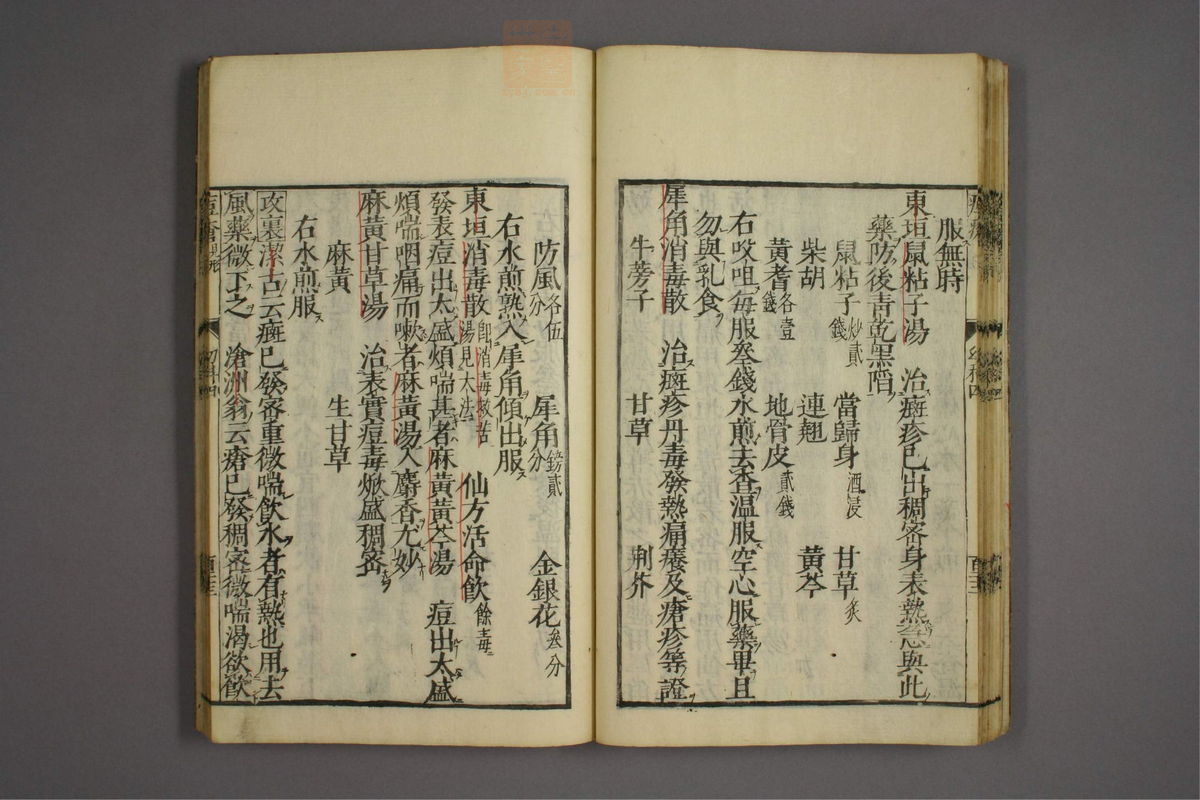 服無時
東垣鼠粘子湯　治癍疹已出稠密身表熱急與此
藥防後青乾黑陷
鼠粘子炒貳錢　當歸身酒浸　甘草炙
柴胡　連翹　黃芩
黃耆各壹錢　地骨皮貳錢
右㕮咀每服叁錢水煎去査温服空心服藥畢且
勿與乳食
犀角消毒散　治癍疹丹毒發熱痛癢及瘡疹等證
牛蒡子　甘草　荆芥
防風各伍分　犀角鎊貳分　金銀花叁分
右水煎熟入犀角傾出服
東垣消毒散卽消毒救苦湯見大法　仙方活命飲餘毒
發表痘出太盛煩喘甚者麻黃黃芩湯　痘出太盛
煩喘咽痛而嗽者麻黃湯入麝香尤妙
麻黃甘草湯　治表實痘毒焮盛稠密
麻黃　生甘草
右水煎服
攻裏潔古云癍已發密重微喘飲水者有熱也用去
風藥微下之　滄洲翁云瘡已發稠密微喘渴欲飲
幼科四
百三三